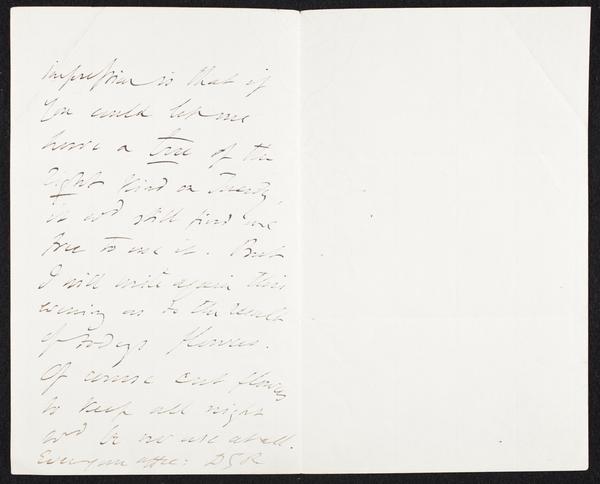 impression is that if
you could let me
have a tree of the
right kind on Tuesday,
it wd still find me
free to use it. But
I will write again this
evening as to the result
of today's flowers.
Of course cut flowers
to keep all night
wd be no use at all.
Ever yours affec: DGR